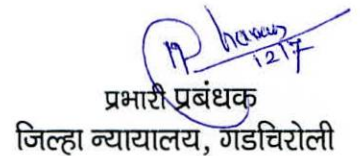 12/7
प्रभारी प्रबंधक
जिल्हा न्यायालय, गडचिरोली